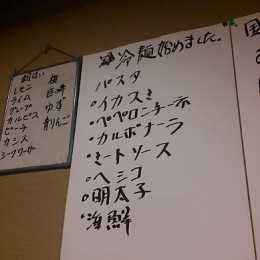 冷麺始めました。
パスタ
・イカスミ
・ペペロンチーノ
・カルボナーラ
・ミートソース
・ヘシコ
・明太子
・海鮮
酎はい
レモン
ライム
グレープ
カルピス
ピーチ
カシス
シークワーサー
梅
巨峰
ゆず
青りんご